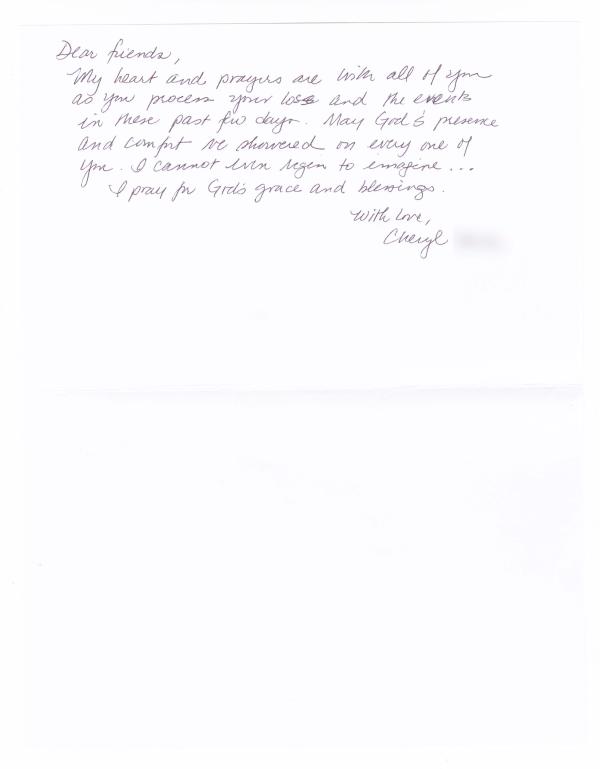 Dear friends,
My heart and prayers are with all of you
as you process your loss and the events
in these past few days. May God's presence
and comfort be showered on every one of
you. I cannot even begin to imagine...
I pray for God's grace and blessings.
With love,
Cheryl